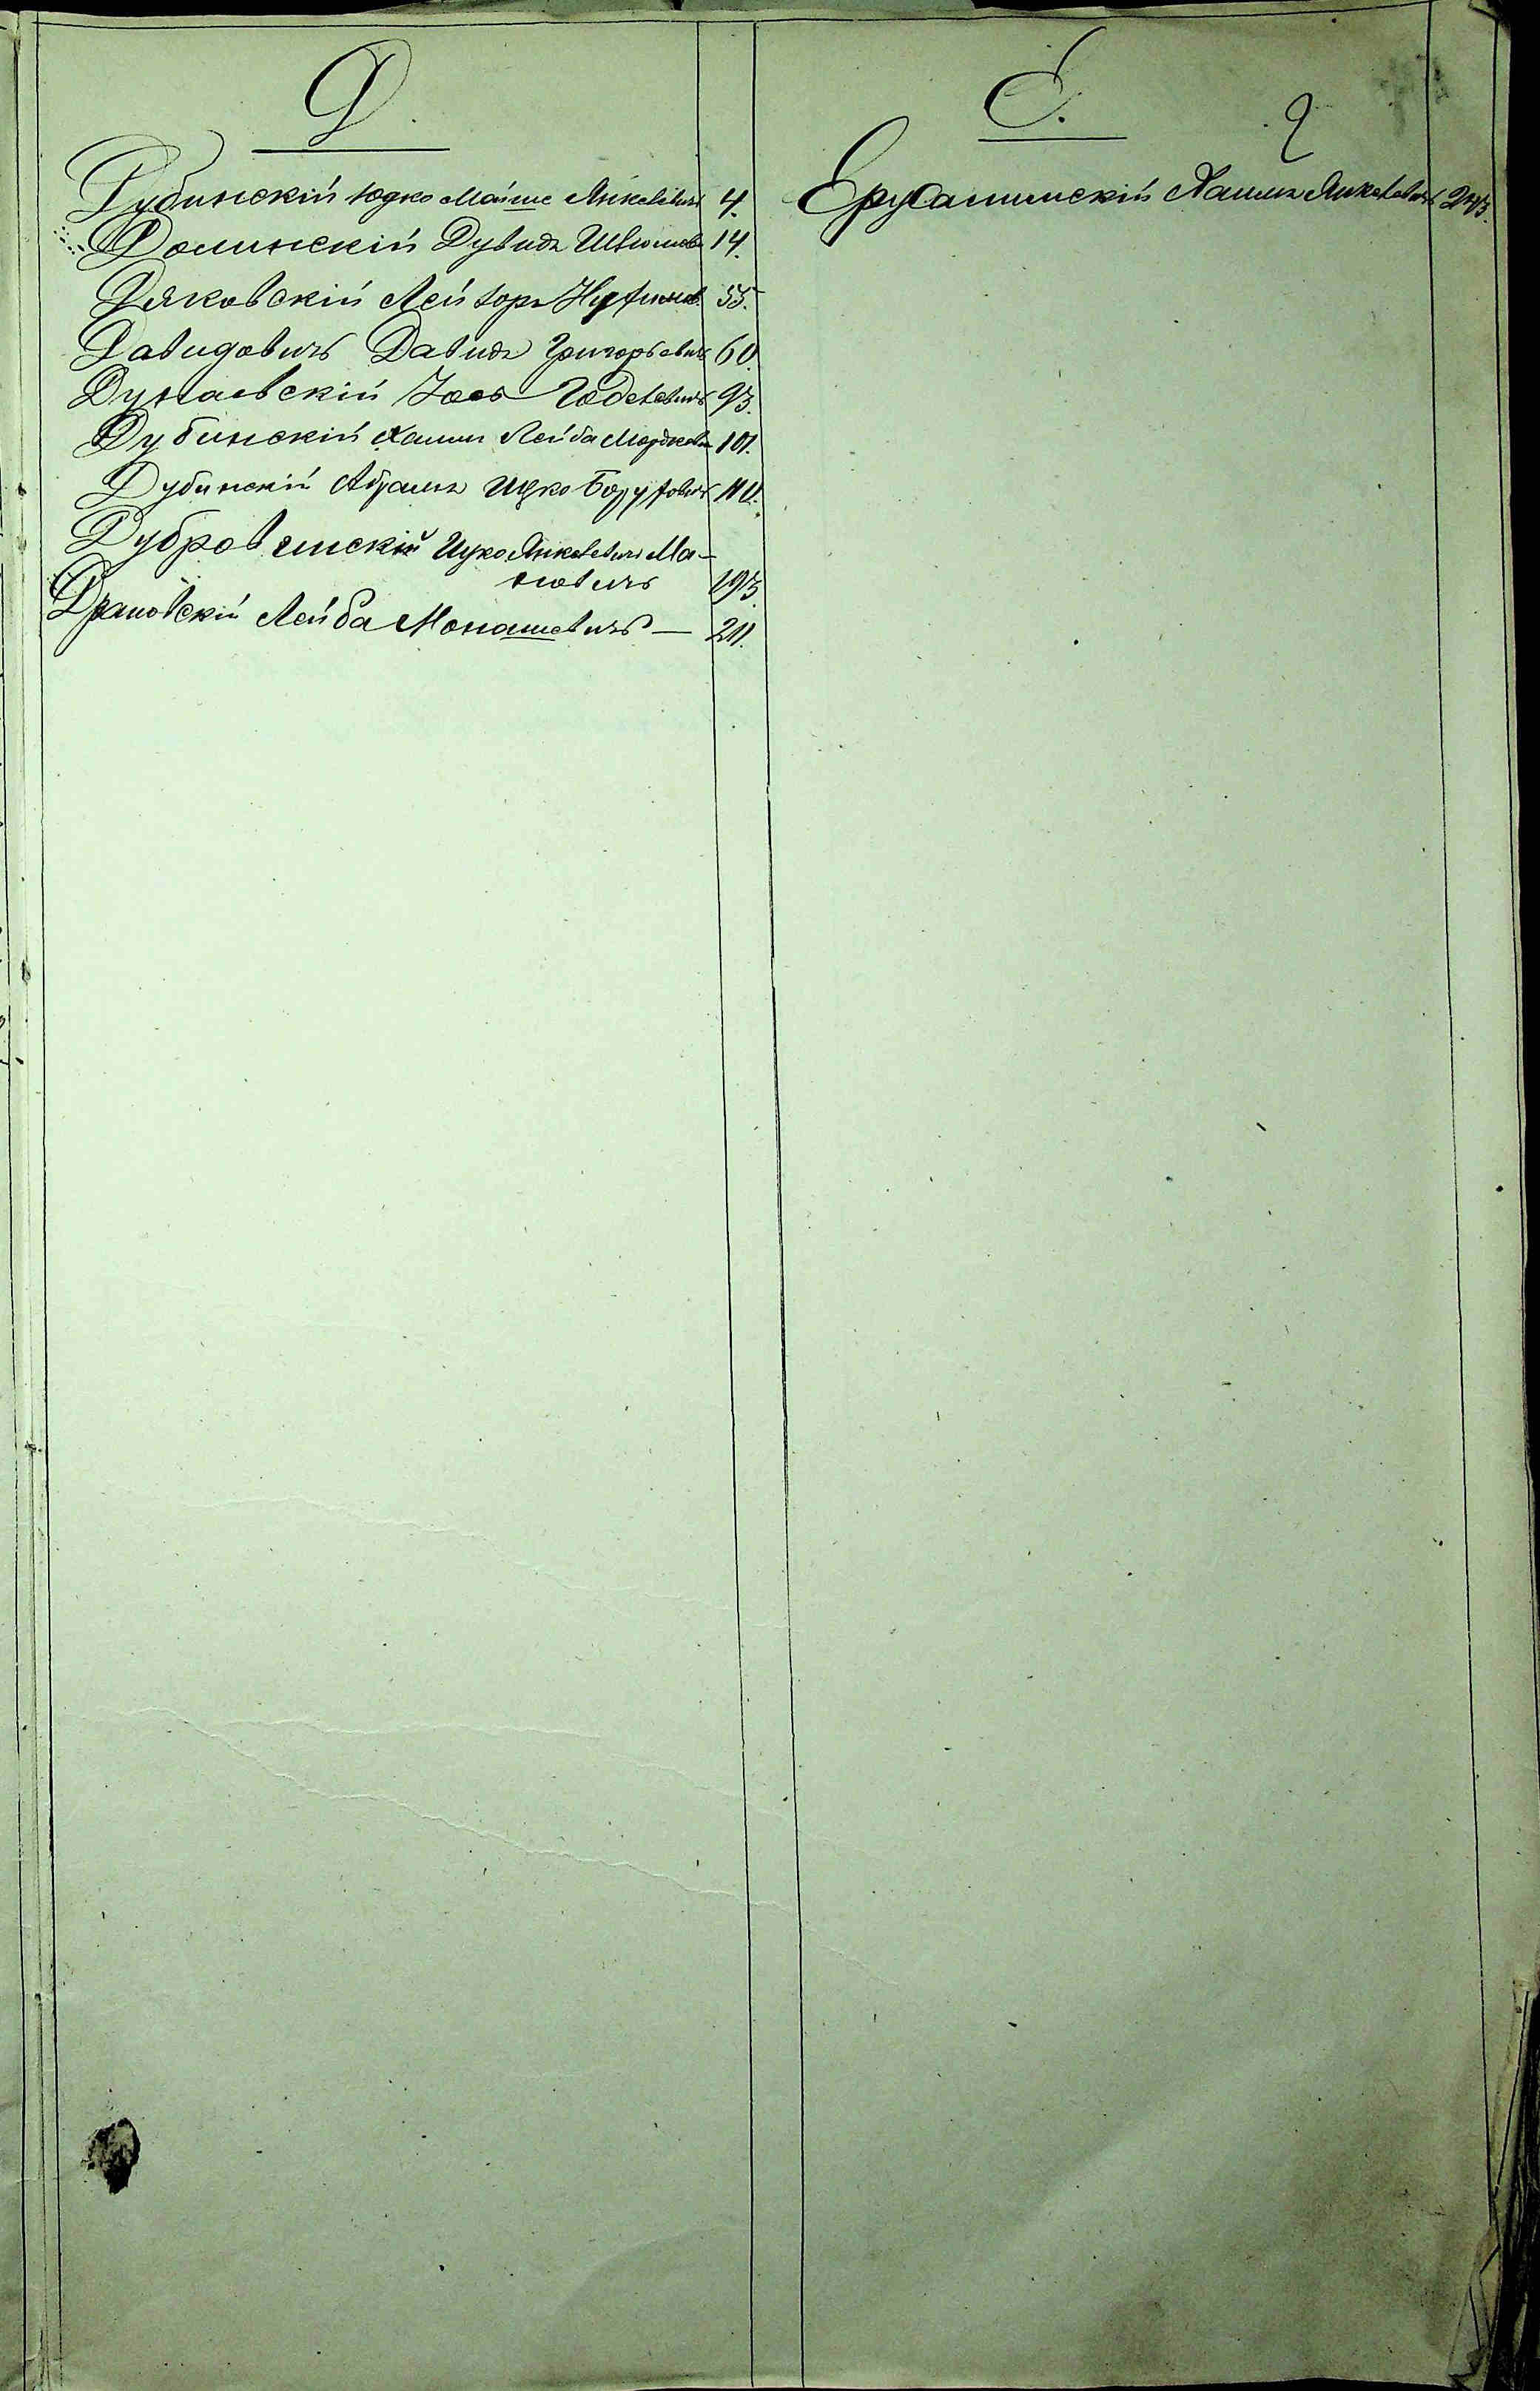 Д.
Дубинскій Юдко Майше Янкелевичъ 4.
Долинскій Дувидъ 14.
Дяковскій Лейзоръ 55.
Давидовичъ Давидъ Григорьевичъ 60.
Дунаевскій Іось Годелевичъ 93.
Дубинскій Хаимъ Лейба Мордков 101.
Дубинскій Абрамъ Ицко Боруховичъ 110.
Дубровинскій Ицко Янкелевичъ Ма-
193.
Драновскій Лейба Монашевичъ — 211.
Е.
2
Ерусалимскій Хаимъ Янкелевичъ 243.